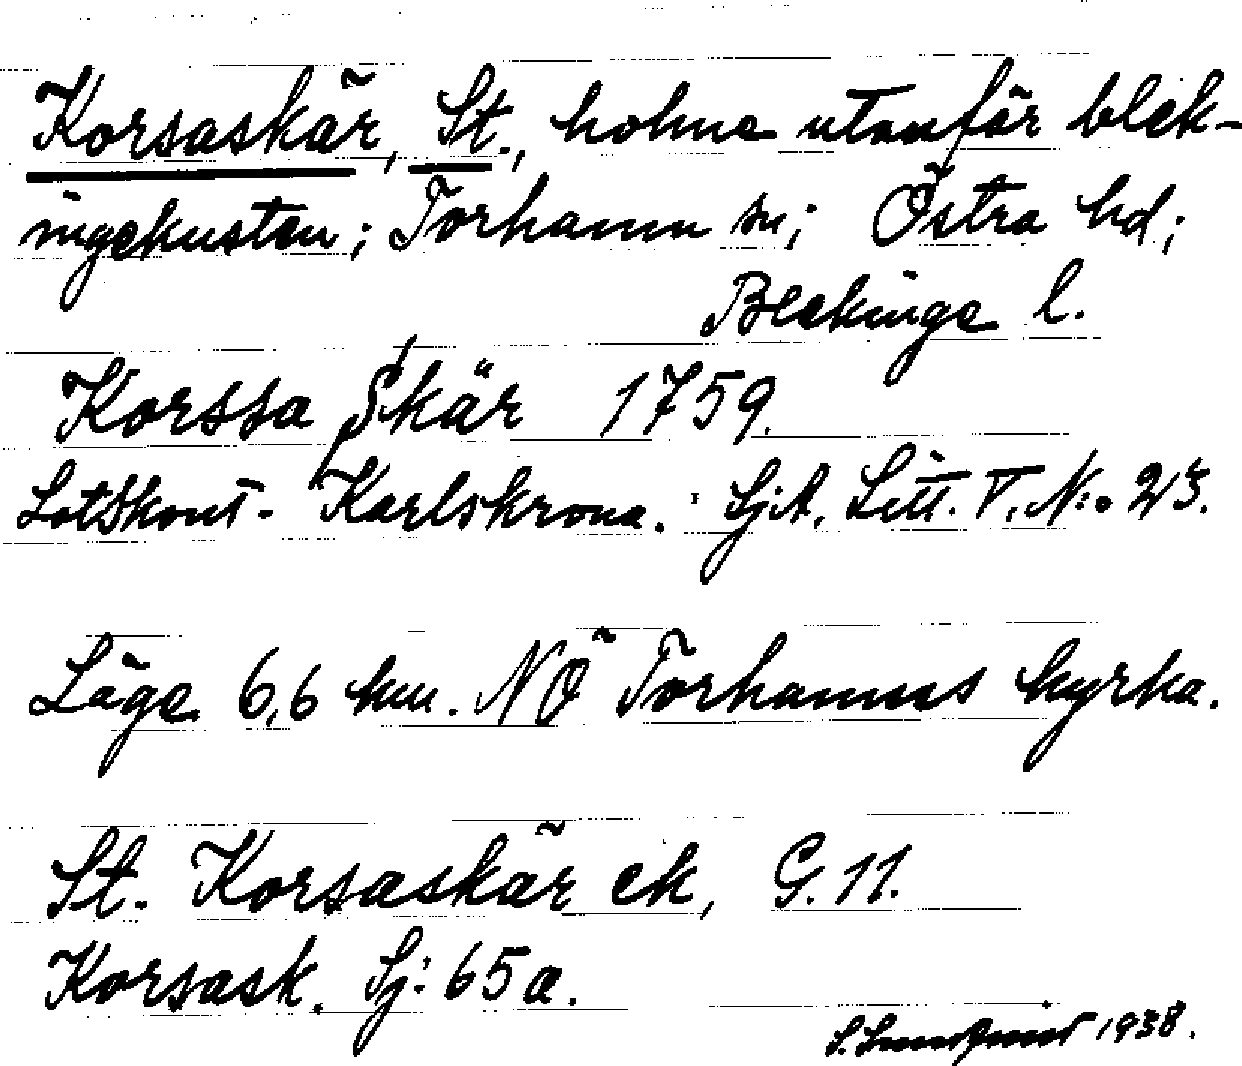 Korsaskär, St., holme utanför blek-
ingekusten; Torhamn sn; Östra hd;
Blekinge l.
Korssa Skär 1759.
Lotskont- Karlskrona. Sj.A. Litt. T. N:o 23.
Läge 6,6 km. NÖ Torhamns kyrka.
St. Korsaskär ek, G. 11.
Korsask. Sj: 65a.
S. Lundqvist 1938.